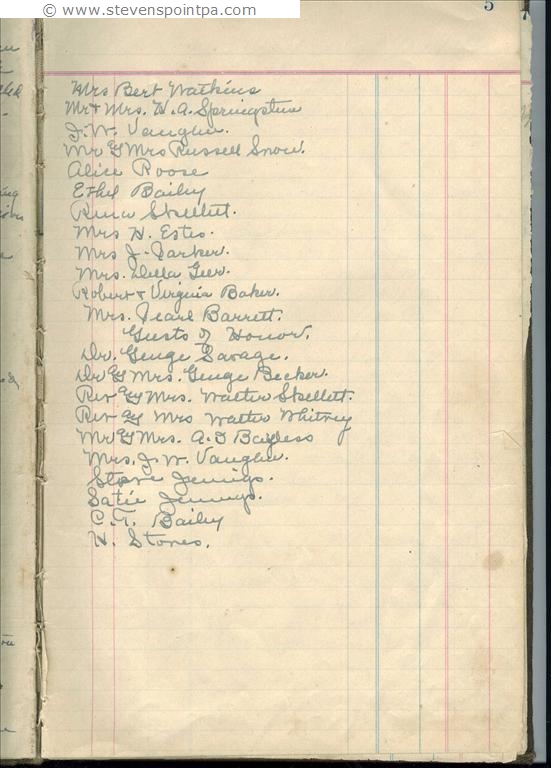 © www.stevenspointpa.com
5
Mrs Bert Watkins
Mr & Mrs. H. A. Springstun
J. W. Vaughn.
Mr & Mrs Russell Snow.
Alice Roose
Ethel Bailey
Rena Skellett.
Mrs H. Estes.
Mrs J. Parker.
Mrs. Della Geer.
Robert & Virginia Baker.
Mrs. Pearl Barrett.
Guests of Honor.
Dr. George Savage.
Dr & Mrs. George Becker.
Rev & Mrs. Walter Skellett.
Rev & Mrs Walter Whitney
Mr & Mrs. A. D Bayless
Mrs. J. W. Vaughn.
Steve Jennings.
Satie Jennings.
C. T. Bailey
H. Stones.